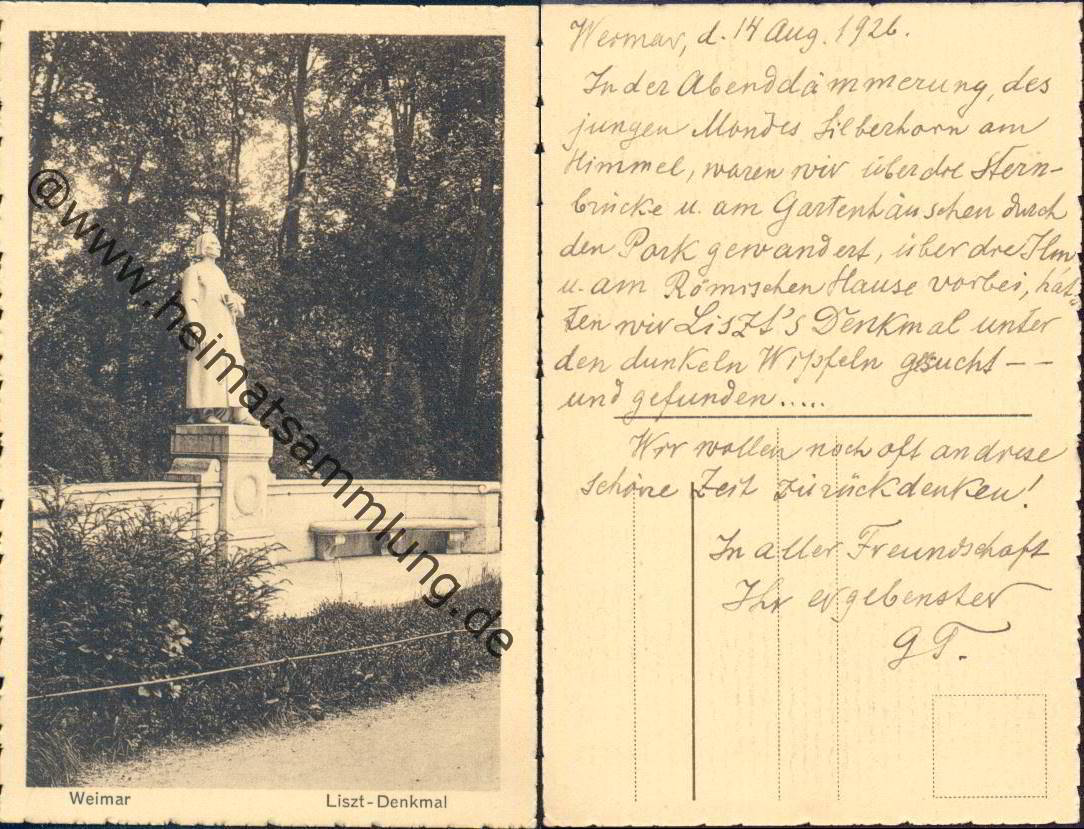 Weimar
Liszt-Denkmal
@www.heimatsammlung.de
Weimar, d. 14 Aug. 1926.
In der Abenddämmerung, des
jungen Mondes Silberhorn am
Himmel, waren wir über die Stern-
brücke u. am Gartenhäuschen durch
den Park gewandert, über die Ilm
u. am Römischen Hause vorbei, hat-
ten wir Liszt's Denkmal unter
den dunkeln Wipfeln gesucht — —
und gefunden.....
Wir wollen noch oft an diese
schöne Zeit zurückdenken!
In aller Freundschaft
Ihr ergebenster
GT.